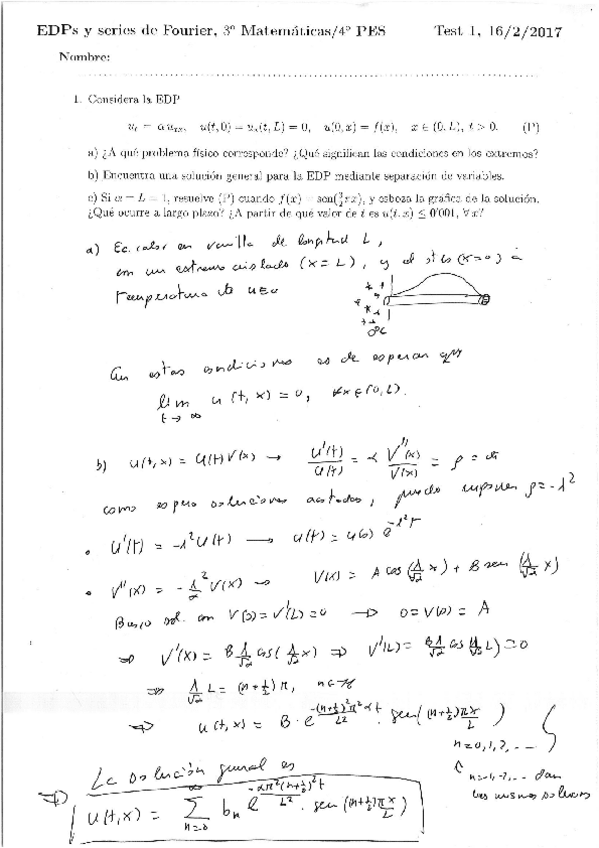 EDPs y series de Fourier, 3º Matemáticas/4º PES Test 1, 16/2/2017
Nombre:
1. Considera la EDP
u_t = α u_xx, u(t,0) = u_x(t,L) = 0, u(0,x) = f(x), x ∈ (0,L), t > 0. (P)
a) ¿A qué problema físico corresponde? ¿Qué significan las condiciones en los extremos?
b) Encuentra una solución general para la EDP mediante separación de variables.
c) Si α = L = 1, resuelve (P) cuando f(x) = sen( πx), y esboza la gráfica de la solución.
¿Qué ocurre a largo plazo? ¿A partir de qué valor de t es u(t,x) ≤ 0'001, ∀x?
a) Ec. calor en varilla de longitud L,
con un extremo aislado (x = L), y el otro (x=0) a
temperatura de u=0
0ºC
En estas condiciones es de esperar que
lim u(t,x) = 0, ∀x∈(0,L).
t→∞
b) u(t,x) = U(t)V(x) → U'(t)/U(t) = α V''(x)/V(x) = ρ =
como espero soluciones acotadas, puedo suponer ρ = -λ²
• U'(t) = -λ² U(t) → U(t) = U(0) e^{-λ²t}
• V''(x) = -λ²/α V(x) → V(x) = A cos(λ/√α x) + B sen(λ/√α x)
Busco sol. con V(0) = V'(L) = 0 → 0 = V(0) = A
⇒ V'(x) = B λ/√α cos(λ/√α x) ⇒ V'(L) = Bλ/√α cos(λ/√α L) = 0
⇒ λ/√α L = (n+½)π, n∈ℤ
⇒ u(t,x) = B · e^{-(n+½)²π²αt/L²} · sen((n+½)πx/L)
n=0,1,2,...
n=-1,-2,... dan
las mismas soluciones
⇒ La solución general es
u(t,x) = ∑_{n=0}^{∞} b_n e^{-απ²(n+½)²t/L²} · sen((n+½)πx/L)